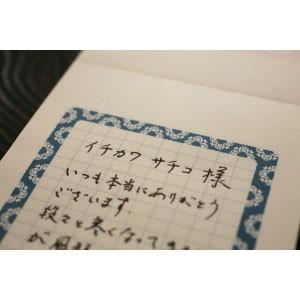 イチカワ サチコ 様
いつも本当にありがとう
ございます.
段々と寒くなってき
が風邪